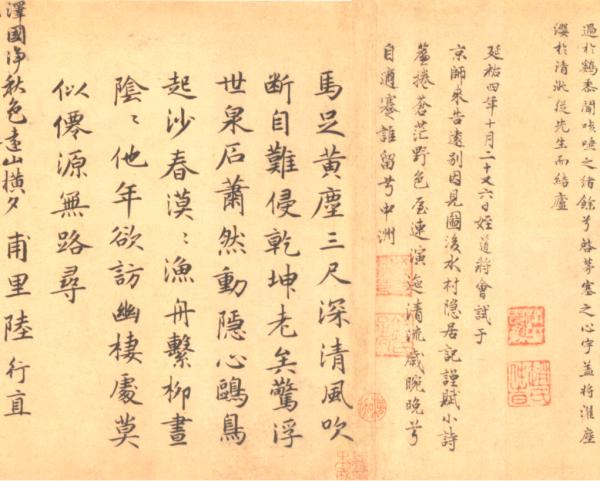 過於鷄黍聞咳唾之緒餘兮啓茅塞之心宇盖将濯塵
纓於清泚從先生而結廬
延祐四年十月二十又六日姪道將會試于
京師來告遠別因見圖後水村隐居記謹賦小詩
蒼茫野色
清流歲晼晚兮
自適蹇誰留兮中洲
馬足黄塵三尺深清風吹
断自難侵乾坤老矣驚浮
世泉石蕭然動隱心鷗鳥
起沙春漠〻漁舟繫柳晝
陰〻他年欲訪幽棲處莫
似僊源無路尋
甫里陸行直
澤國淨秋色遠山橫夕